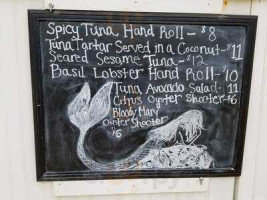 Spicy Tuna Hand Roll - $8
Tuna Tartar Served in a Coconut - $11
Seared Sesame Tuna - $12
Basil Lobster Hand Roll - $10
Tuna Avocado Salad - 11
Citrus Oyster Shooter - $6
Bloody Mary
Oyster Shooter
$6